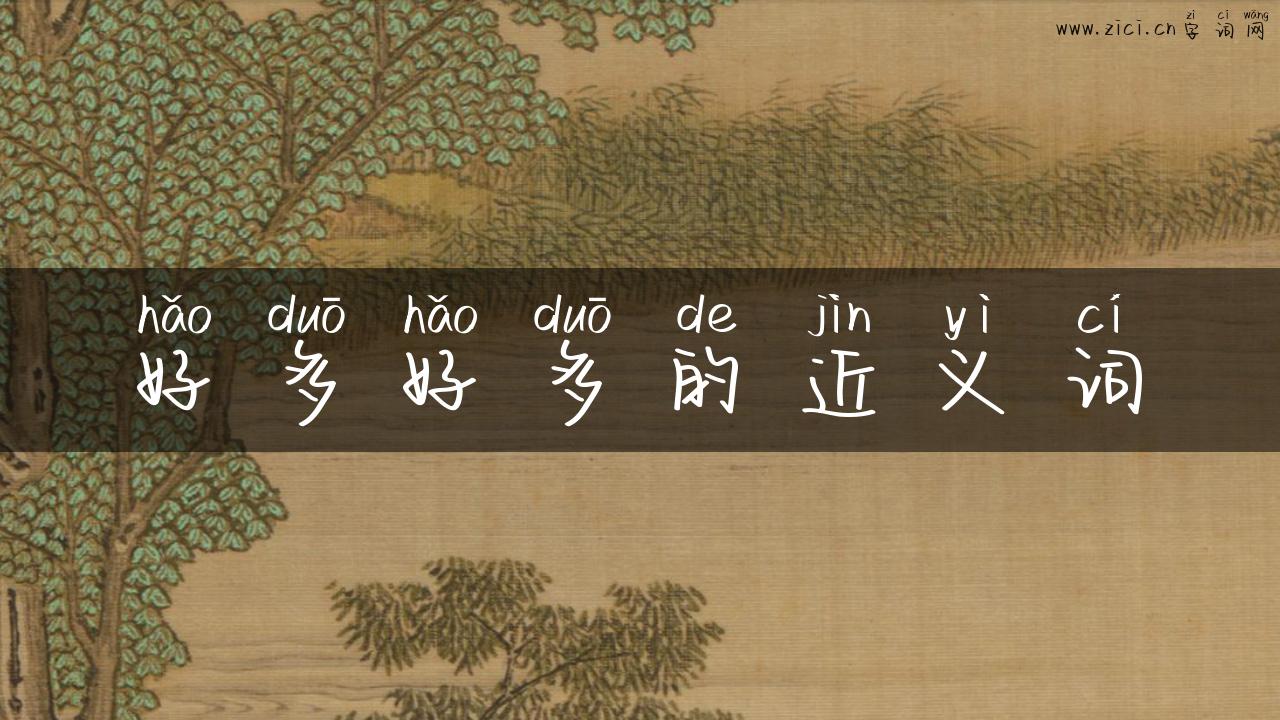 zì cí wǎng
www.zici.cn 字词网
hǎo duō hǎo duō de jìn yì cí
好多好多的近义词